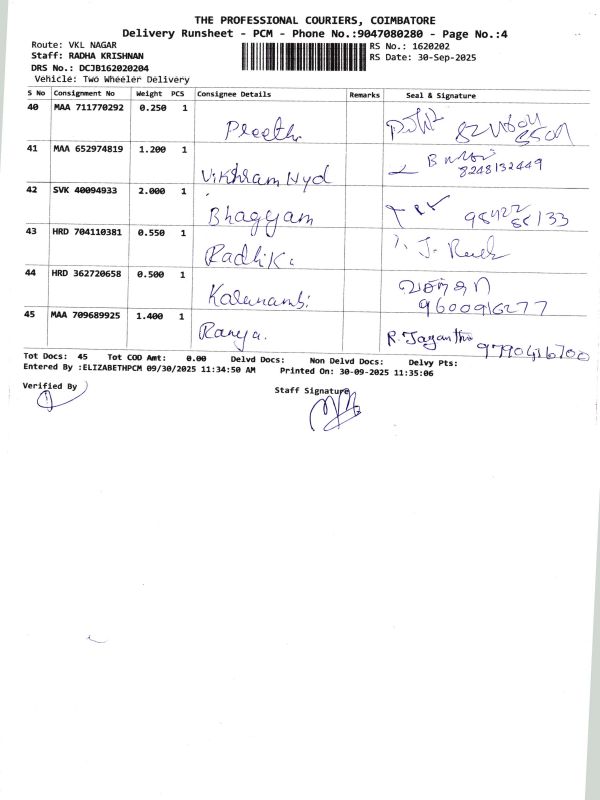 THE PROFESSIONAL COURIERS, COIMBATORE
Delivery Runsheet - PCM - Phone No.:9047080280 - Page No.:4
Route: VKL NAGAR RS No.: 1620202
Staff: RADHA KRISHNAN RS Date: 30-Sep-2025
DRS No.: DCJB162020204
Vehicle: Two Wheeler Delivery
S No Consignment No Weight PCS Consignee Details Remarks Seal & Signature
40 MAA 711770292 0.250 1
Preethi
41 MAA 652974819 1.200 1
Vikhram Nyd 8248132449
42 SVK 40094933 2.000 1
Bhagyam
43 HRD 704110381 0.550 1
Radhika
44 HRD 362720658 0.500 1
9600916277
45 MAA 709689925 1.400 1
Ranya. R. Jayanthi 9790416700
Tot Docs: 45 Tot COD Amt: 0.00 Delvd Docs: Non Delvd Docs: Delvy Pts:
Entered By :ELIZABETHPCM 09/30/2025 11:34:50 AM Printed On: 30-09-2025 11:35:06
Verified By Staff Signature